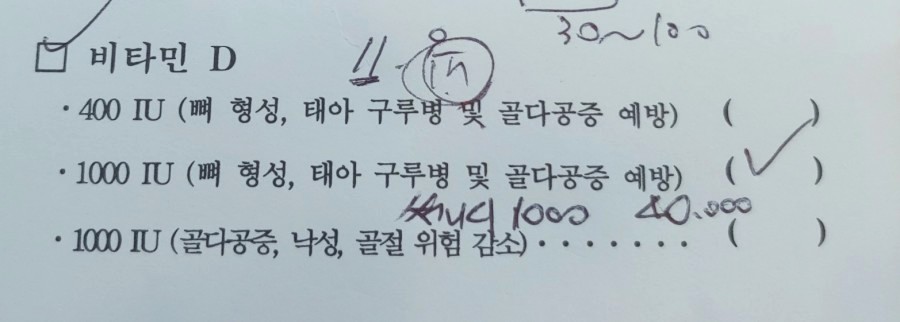 30~100
비타민 D 11
· 400 IU (뼈 형성, 태아 구루병 및 골다공증 예방) ( )
· 1000 IU (뼈 형성, 태아 구루병 및 골다공증 예방) ( ✓ )
1000 40.000
· 1000 IU (골다공증, 낙성, 골절 위험 감소) · · · · · · · ( )